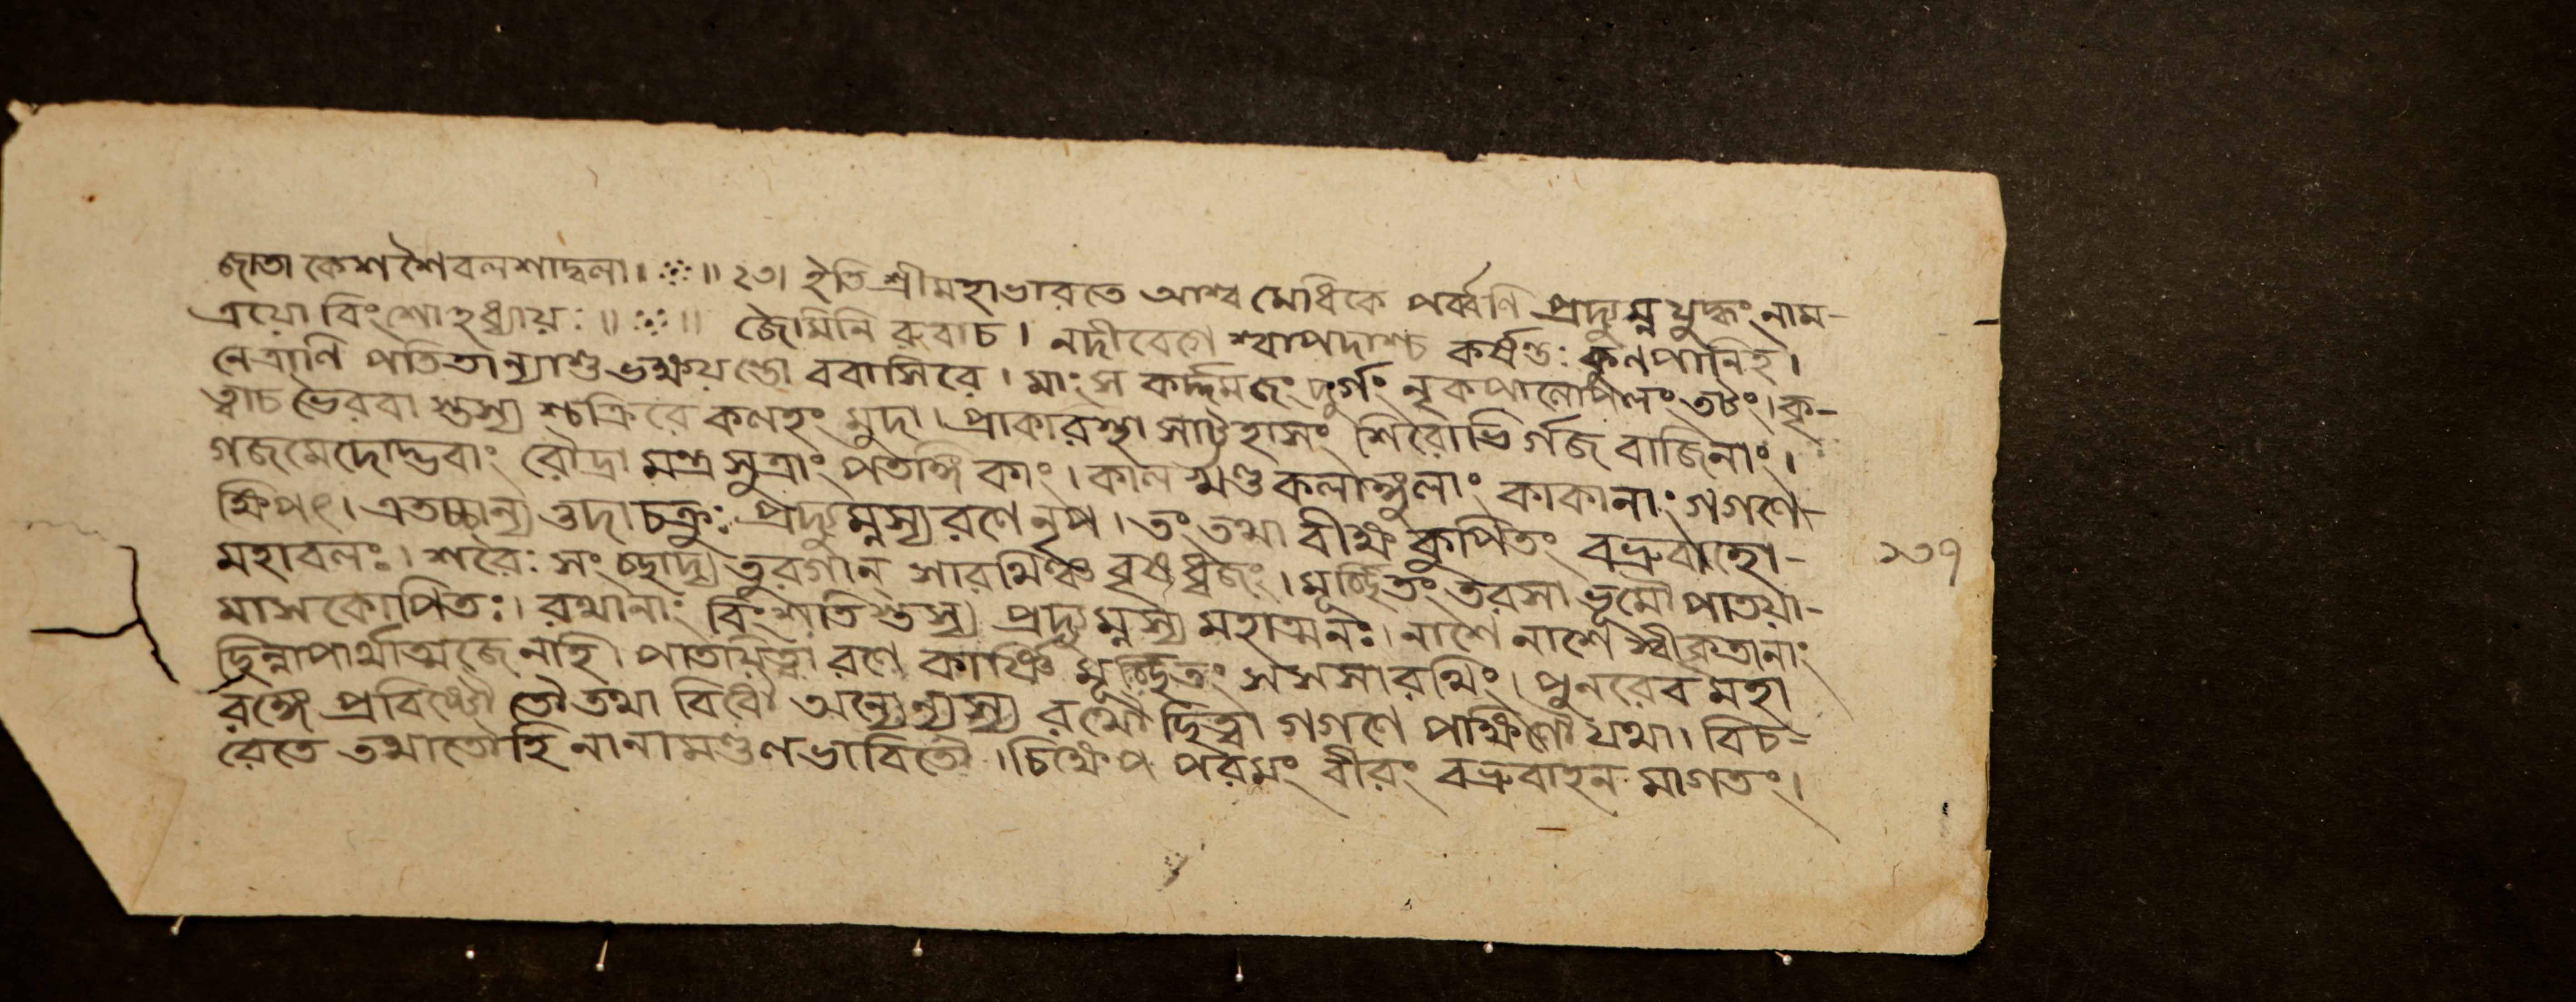 জাতা কেশ শৈবলশাদ্বলা॥ ॥ ২৩। ইতি শ্রীমহাভারতে আশ্ব মেধিকে পর্ব্বণি প্রদ্যুম্ন যুদ্ধং নাম-
ত্রয়ো বিংশোঽধ্যায়ঃ॥ ॥ জৈমিনি রুবাচ। নদীবেগে শ্বাপদাশ্চ কর্ষন্তঃ কুণপানিহ।
নেত্রাণি পতিতান্যাশু ভক্ষয়ন্তো ববাসিরে। মাংস কর্দ্দমজং দুর্গং নৃকপালোপলং তটং। কৃ-
ত্বাচ ভৈরবা স্তস্য শ্চক্রিরে কলহং মুদা। প্রাকারস্থা সাট্টহাসং শিরোভি র্গজ বাজিনাং।
গজমেদোদ্ভবাং রৌদ্রা মন্ত্র সুত্রাং পতঙ্গি কাং। কাল খণ্ড কলাঙ্গুলাং কাকানাং গগণে-
ক্ষিপৎ। এতচ্চান্য ত্তদা চক্রুঃ প্রদ্যুম্নস্য রণে নৃপ। তং তথা বীক্ষ কুপিতং বভ্রুবাহো-
মহাবলঃ। শরৈঃ সংচ্ছাদ্য তুরগান্ সারথিঞ্চ বৃষধ্বজং। মূর্চ্ছিতং তরসা ভূমৌ পাতয়া-
মাসকোপিতঃ। রথানাং বিংশতি স্তস্য প্রদ্যুম্নস্য মহাত্মনঃ। নাশে নাশে স্বীকৃতানাং
ছিন্নাপার্থাত্মজে নহি। পাতয়িত্বা রণে কার্ষ্ণিং মূর্চ্ছিতং সসসারথিং। পুনরেব মহা
রঙ্গে প্রবিষ্টৌ তৌ তথা বিধৌ অন্যোন্যস্য রথৌ ছিত্বা গগণে পক্ষিণৌ যথা। বিচ-
রেতে তথাতৌহি নানামণ্ডলভাবিতৌ। চিক্ষেপ পরমং বীরং বভ্রুবাহন মাগতং।
১৩৭